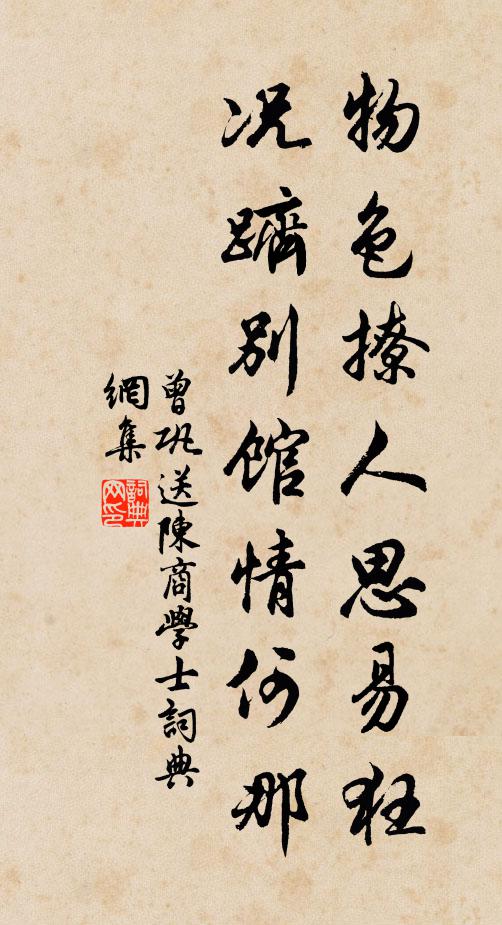 物色撩人思易狂
况躋别馆情何那
曾巩送陳商學士詞典
網集
詞典網印